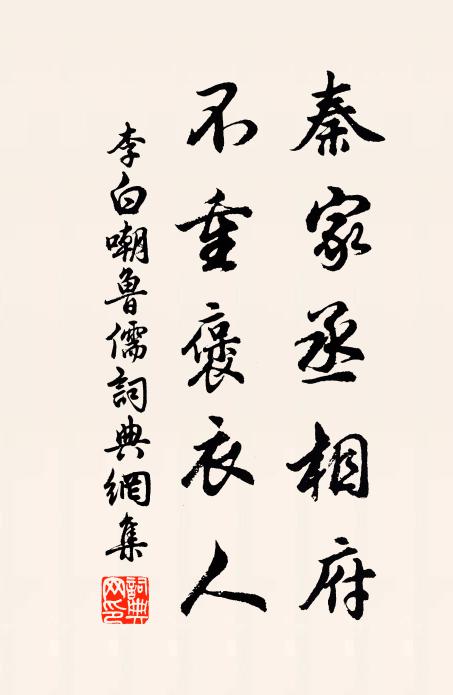 秦家丞相府
不重褒衣人
李白嘲魯儒詞典網集
詞典網印